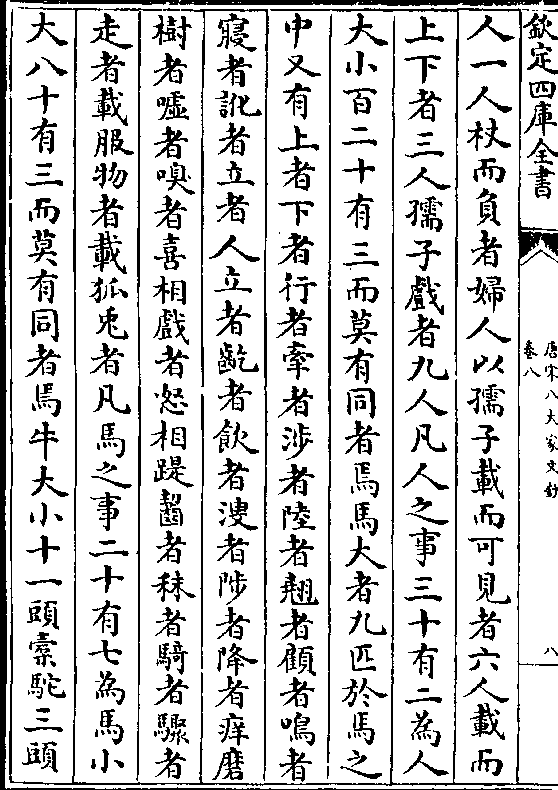 欽定四庫全書
唐宋八大家文鈔
卷八
八
人一人杖而負者婦人以孺子載而可見者六人載而
上下者三人孺子戲者九人凡人之事三十有二為人
大小百二十有三而莫有同者焉馬大者九匹於馬之
中又有上者下者行者牽者涉者陸者翹者顧者鳴者
寢者訛者立者人立者齕者飲者溲者陟者降者痒磨
樹者噓者嗅者喜相戲者怒相踶齧者秣者騎者驟者
走者載服物者載狐兎者凡馬之事二十有七為馬小
大八十有三而莫有同者焉牛大小十一頭橐駝三頭